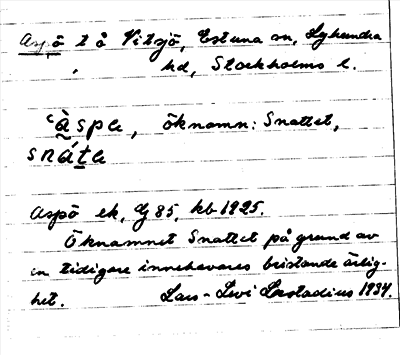 Aspö t å Vitsjö, Estuna sn, Lyhundra
hd, Stockholms l.
‘àspa, öknamn: Snattet,
snáta
Aspö ek, G 85, kb 1925.
Öknamnet Snattet på grund av
en tidigare innehavares bristande ärlig-
het. Lars-Levi Læstadius 1934.